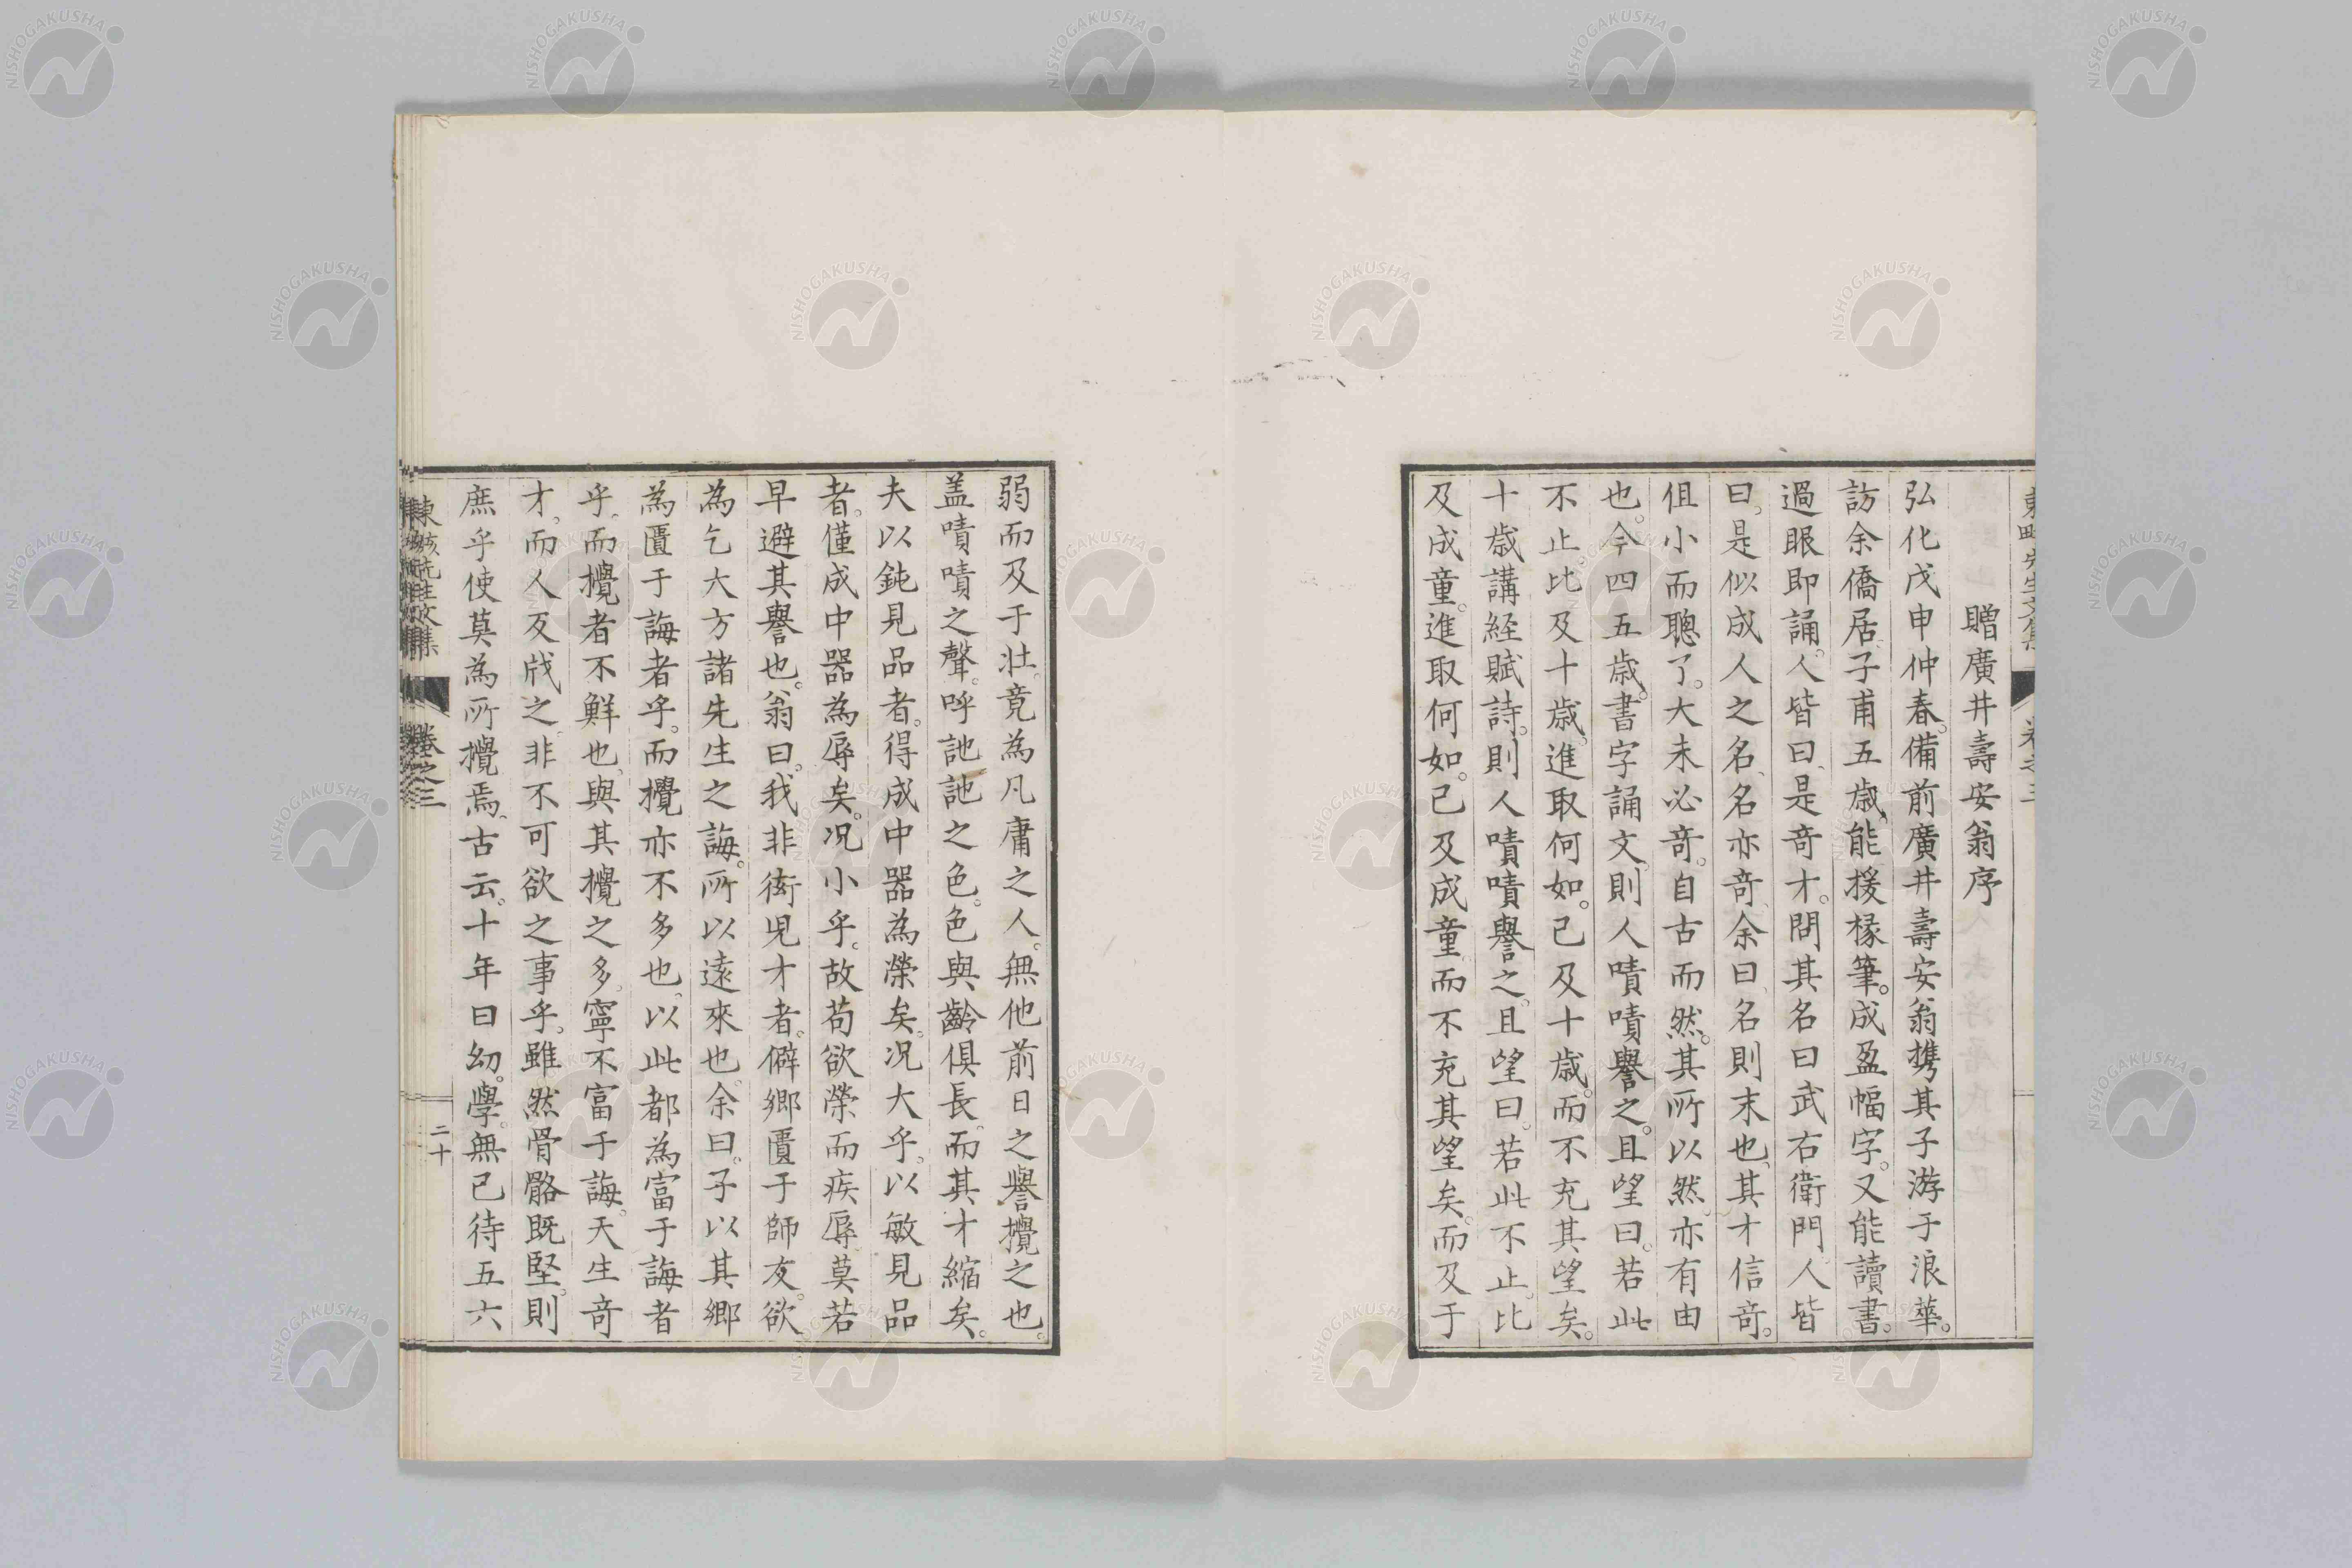 贈廣井壽安翁序
弘化戊申仲春。備前廣井壽安翁携其子游于浪華。
訪余僑居。子甫五歲。能援椽筆。成盈幅字。又能讀書。
過眼即誦。人皆曰、是奇才。問其名曰武右衛門。人皆
曰。是似成人之名、名亦奇、余曰、名則末也、其才信奇。
伹小而聰了。大未必奇。自古而然。其所以然、亦有由
也。今四五歲。書字誦文、則人嘖嘖譽之。且望曰。若此
不止比及十歲。進取何如。已及十歲。而不充其望矣。
十歲講経賦詩。則人嘖嘖譽之。且望曰。若此不止。比
及成童。進取何如。已及成童。而不充其望矣。而及于
弱而及于壯。竟為凡庸之人。無他前日之譽攪之也。
盖嘖嘖之聲。呼訑訑之色。色與齡俱長。而其才縮矣。
夫以鈍見品者。得成中器為榮矣。况大乎。以敏見品
者。僅成中器為辱矣。况小乎。故苟欲榮而疾辱莫若
早避其譽也。翁曰。我非衒児才者。僻鄉匱于師友。欲
為乞大方諸先生之誨。所以遠來也。余曰。子以其鄉
為匱于誨者乎。而攪亦不多也、以此都為富于誨者
乎。而攪者不鮮也、與其攪之多、寧不富于誨。天生奇
才。而人反戕之。非不可欲之事乎。雖然骨骼既堅。則
庶乎使莫為所攪焉。古云。十年曰幼。學。無已待五六
東畡先生文集
卷之三
二十
東畡先生文集
卷之三
NISHOGAKUSHA